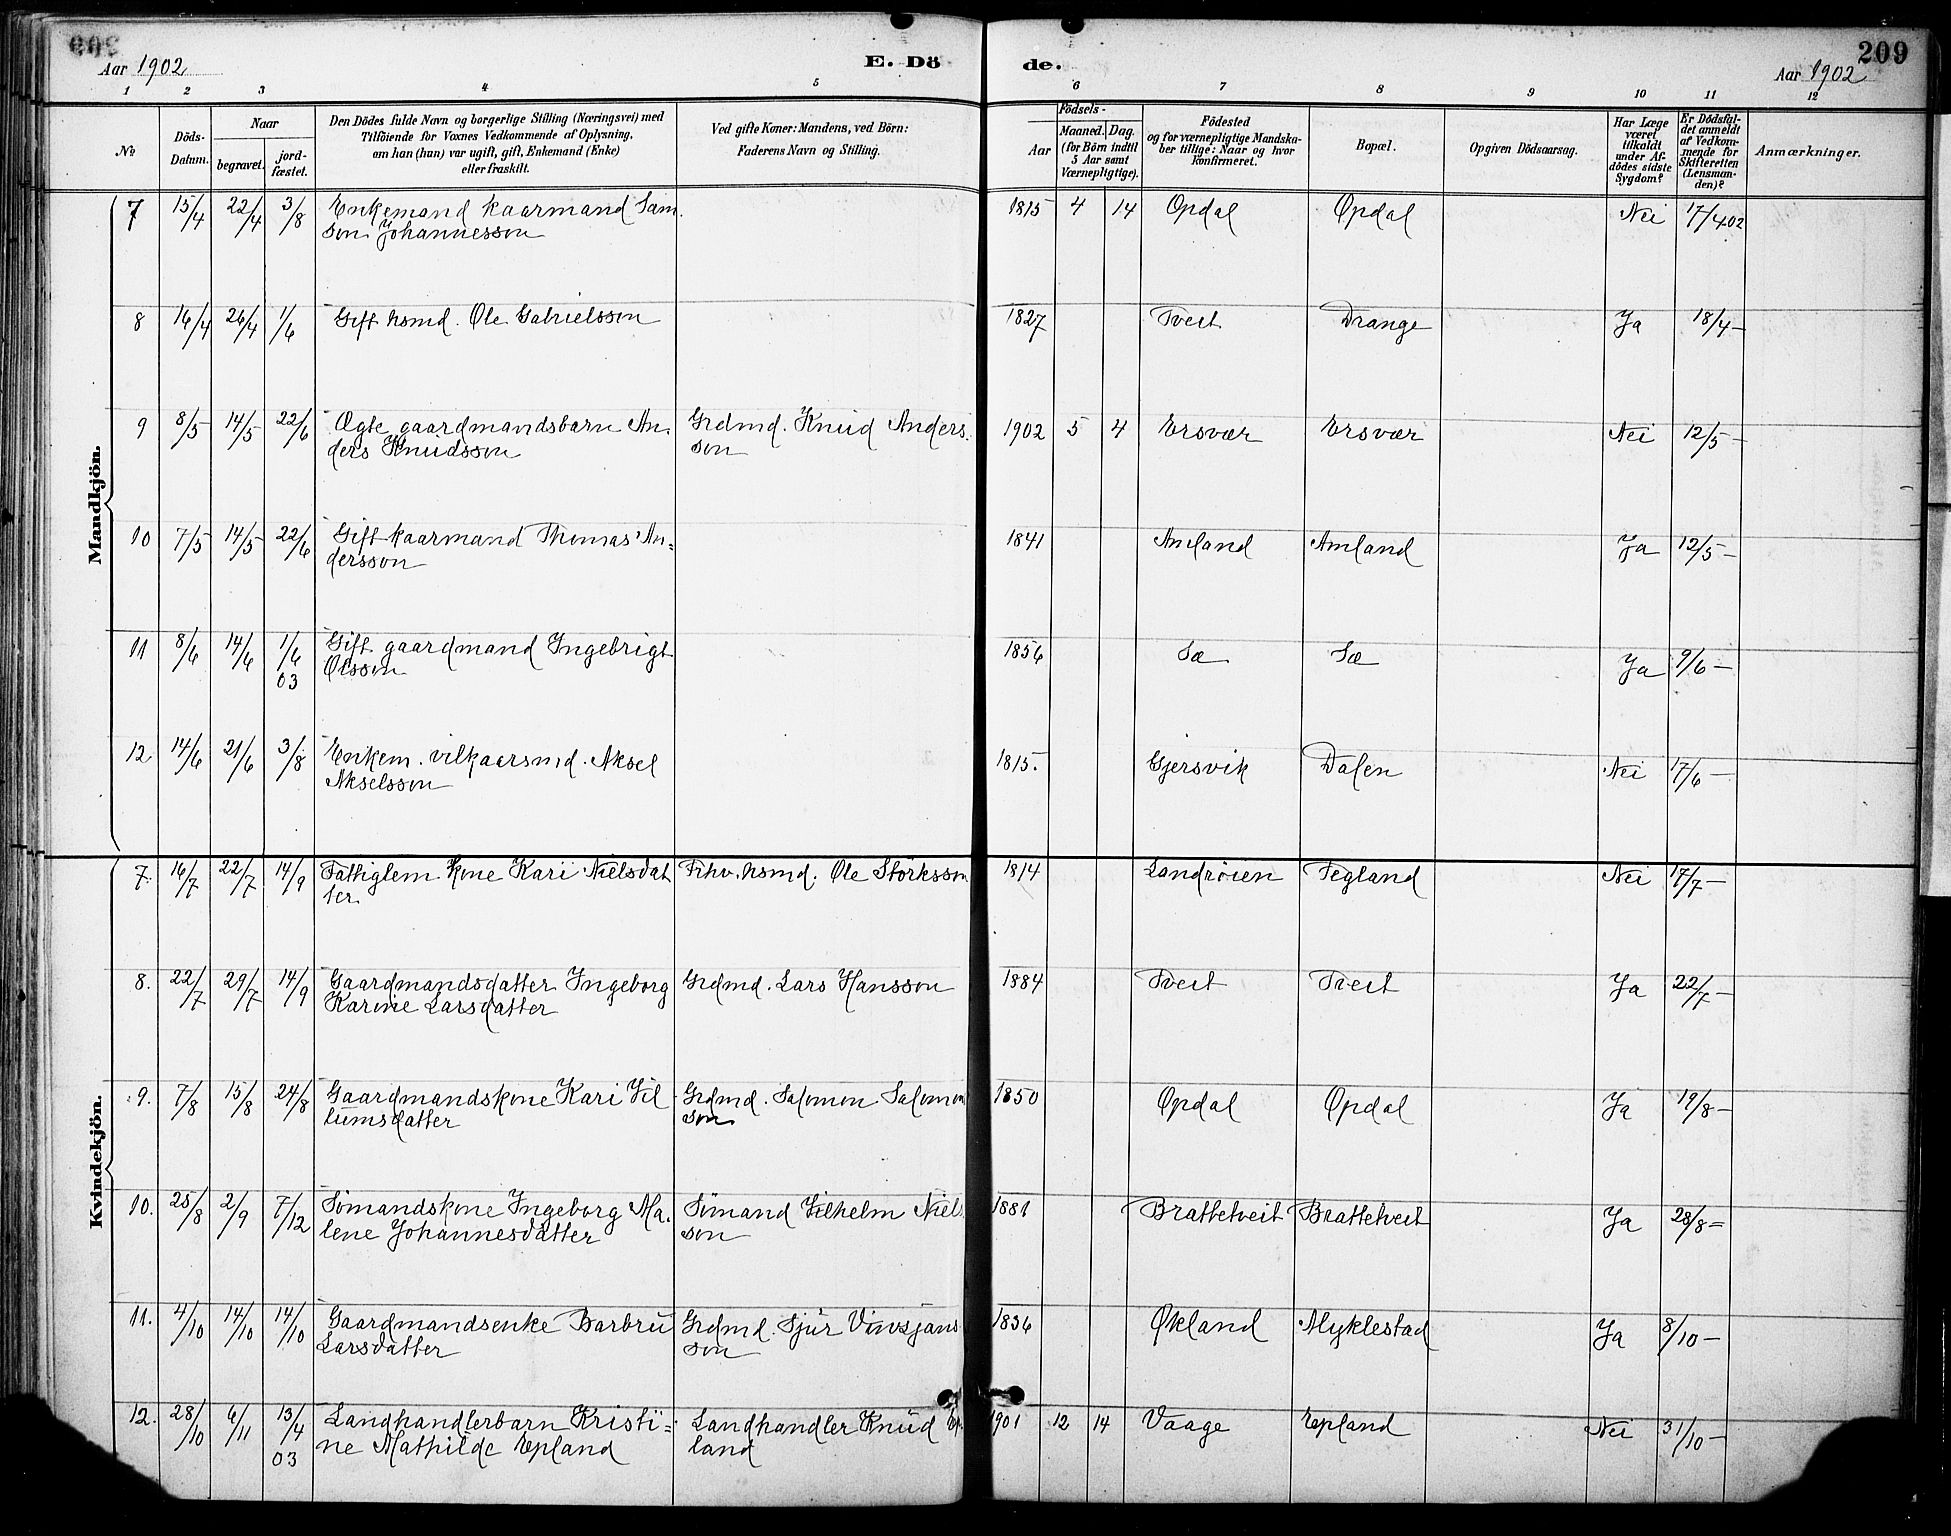 Aar 1902
E. Dö
de.
209
Aar 1902
1 2 3 4 5 6 7 8 9 10 11 12
No
Döds-
Datum.
Naar
begravet.
jord-
fæstet.
Den Dödes fulde Navn og borgerlige Stilling (Næringsvei) med
Tilföiende for Voxnes Vedkommende af Oplysning,
om han (hun) var ugift, gift, Enkemand (Enke)
eller fraskilt.
Ved gifte Koner: Mandens, ved Börn:
Faderens Navn og Stilling.
Födsels-
Aar
Maaned. Dag.
(for Börn indtil
5 Aar samt
Værnepligtige).
Födested
og for værnepligtige Mandska-
ber tillige: Naar og hvor
Konfirmeret.
Bopæl.
Opgiven Dödsaarsag.
Har Læge
været
tilkaldt
under Af-
dödes sidste
Sygdom?
Er Dödsfal-
det anmeldt
af Vedkom-
mende for
Skifteretten
(Lensman-
den)?
Anmærkninger.
Mandkjön.
7 15/4 22/4 3/8 Enkemand kaarmand Sam- 1815 4 14 Opdal Opdal Nei 17/4 02
son Johannesson
8 16/4 26/4 1/6 Gift hsmd. Ole Gabrielsson 1827 Tveit Drange Ja 18/4 —
9 8/5 14/5 22/6 Ægte gaardmandsbarn An- Grdmd. Knud Anders- 1902 5 4 Ersvær Ersvær Nei 12/5 —
ders Knudsson son
10 7/5 14/5 22/6 Gift kaarmand Thomas An= 1841 Amland Amland Ja 12/5 —
dersson
11 8/6 14/6 1/6 03 Gift gaardmand Ingebrigt 1856 Sæ Sæ Ja 9/6 —
Olsson
12 14/6 21/6 3/8 Enkem. vilkaarsmd. Aksel 1815. Gjersvik Dalen Nei 17/6 —
Akselsson
Kvindekjön.
7. 16/7 22/7 14/9 Fattiglem kone Kari Nielsdat Fhv. hsmd. Ole Störksson 1814 Landrøien Tegland Nei 17/7 —
ter
8. 22/7 29/7 14/9 Gaardmandsdatter Ingeborg Grdmd. Lars Hansson 1884 Tveit Tveit Ja 22/7 —
Karine Larsdatter
9. 7/8 15/8 24/8 Gaardmandskone Kari Vil Grdmd. Salomon Salomon 1850 Opdal Opdal Ja 19/8 —
lumsdatter son
10. 25/8 2/9 7/12 Sömandskone Ingeborg Ma- Sömand Vilhelm Niels 1881 Brattetveit Brattetveit Ja 28/8 —
lene Johannesdatter son
11. 4/10 14/10 14/10 Gaardmandsenke Barbru Grdmd. Sjur Vinsjans 1836 Økland Myklestad Ja 8/10 —
Larsdatter son
12. 28/10 6/11 13/4 03 Landhandlerbarn Kristi= Landhandler Knud Ep- 1901 12 14 Vaage Epland Nei 31/10 —
ne Mathilde Epland land